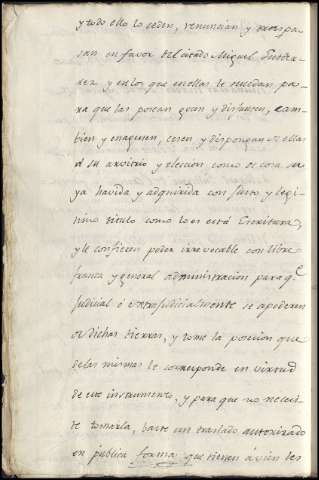 y todo ello lo ceden, renuncian y traspa
san en favor del citado Miguel
y en los que en ellas le sucedan pa
ra que las posean gozen y disfruten, cam
bien y enagenen, cesen y dispongan de ellas
á su arvitrio y eleccion, como de cosa su
ya havida y adquirida con justo y legi
timo titulo como lo es está Escritura,
y le confieren poder irrevocable con libre
franca y general administracion para qe
judicial ó extrajudicialmente se apodere
de dichas tierras, y tome la posecion que
de las mismas le corresponde en virtud
de este instrumento, y para que no necesi
te tomarla, baste un traslado autorizado
en publica forma que tienen á vien les